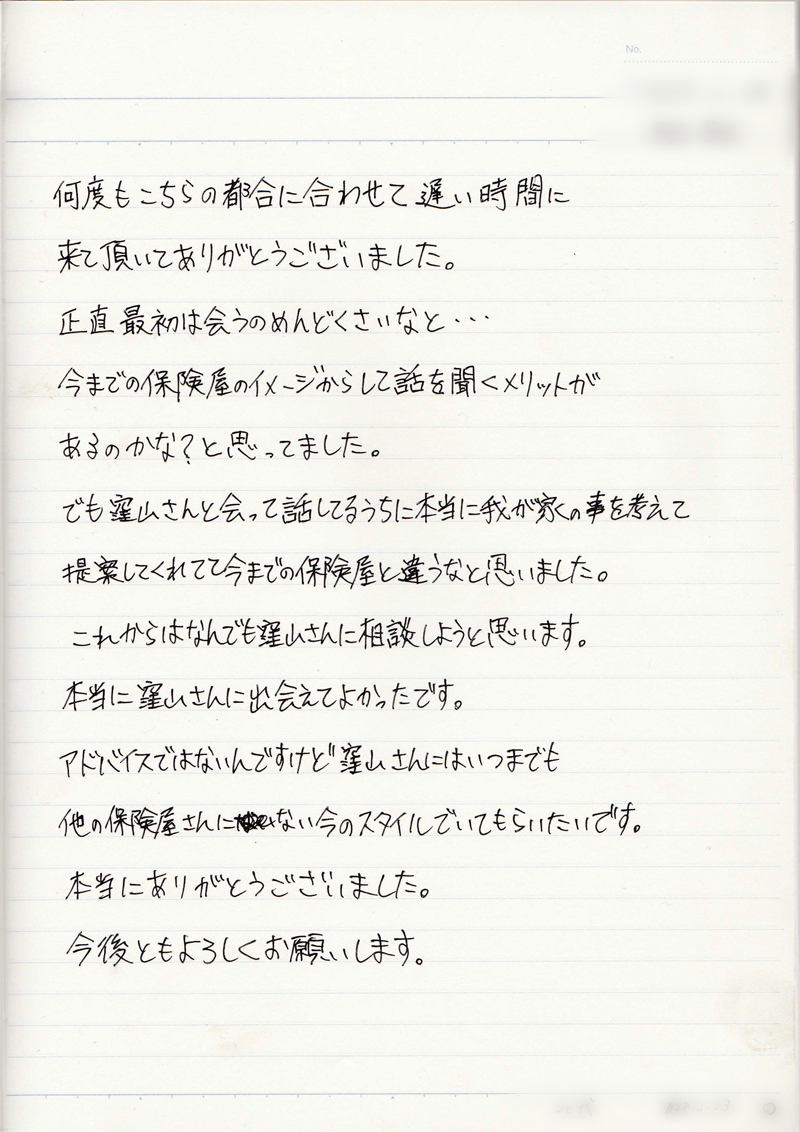 No.
何度もこちらの都合に合わせて遅い時間に
来て頂いてありがとうございました。
正直最初は会うのめんどくさいなと・・・
今までの保険屋のイメージからして話を聞くメリットが
あるのかな?と思ってました。
でも窪山さんと会って話してるうちに本当に我が家の事を考えて
提案してくれてて今までの保険屋と違うなと思いました。
これからはなんでも窪山さんに相談しようと思います。
本当に窪山さんに出会えてよかったです。
アドバイスではないんですけど窪山さんにはいつまでも
他の保険屋さんにない今のスタイルでいてもらいたいです。
本当にありがとうございました。
今後ともよろしくお願いします。